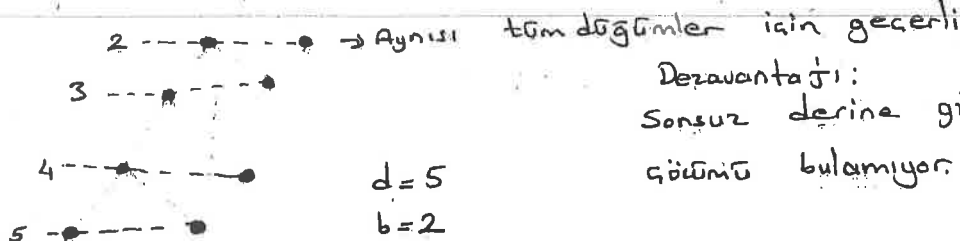 2 → Aynısı tüm düğümler için geçerli
3
Dezavantajı:
Sonsuz derine
4 d = 5 çözümü bulamıyor.
5 b = 2